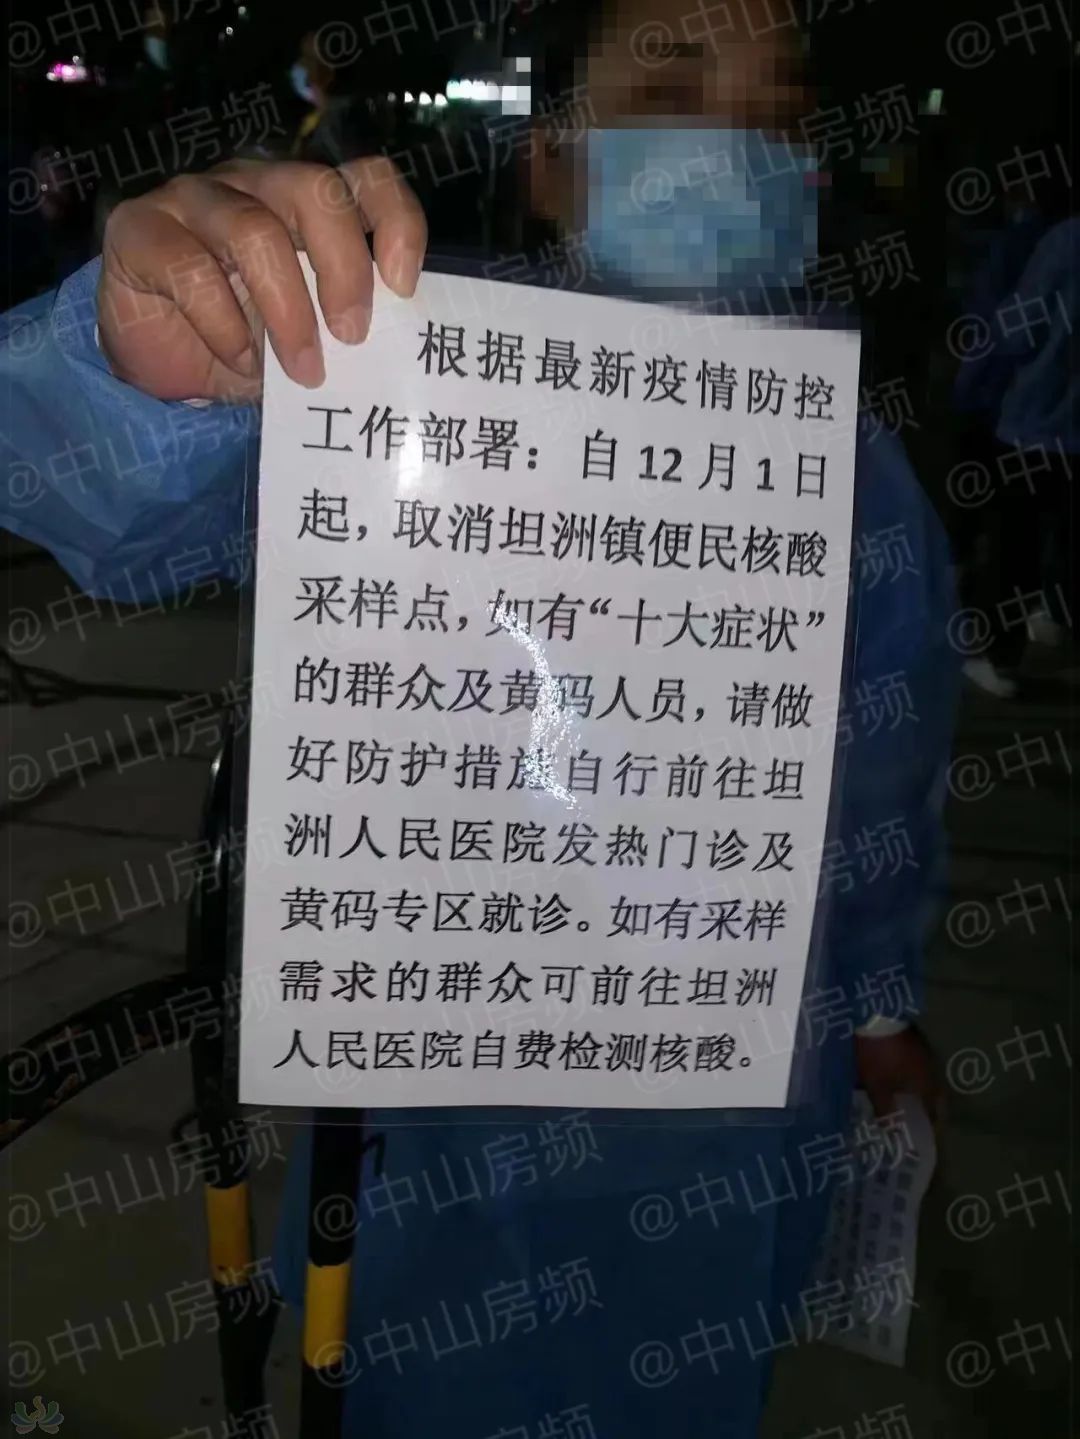 根据最新疫情防控
工作部署：自12月1日
起，取消坦洲镇便民核酸
采样点，如有“十大症状”
的群众及黄码人员，请做
好防护措施自行前往坦
洲人民医院发热门诊及
黄码专区就诊。如有采样
需求的群众可前往坦洲
人民医院自费检测核酸。
@中山房频